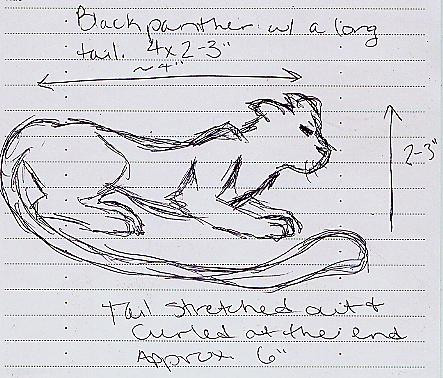 Black panther w/ a long
tail. 4x2-3"
~4"
2-3"
Tail stretched out +
curled at the end
Approx 6"